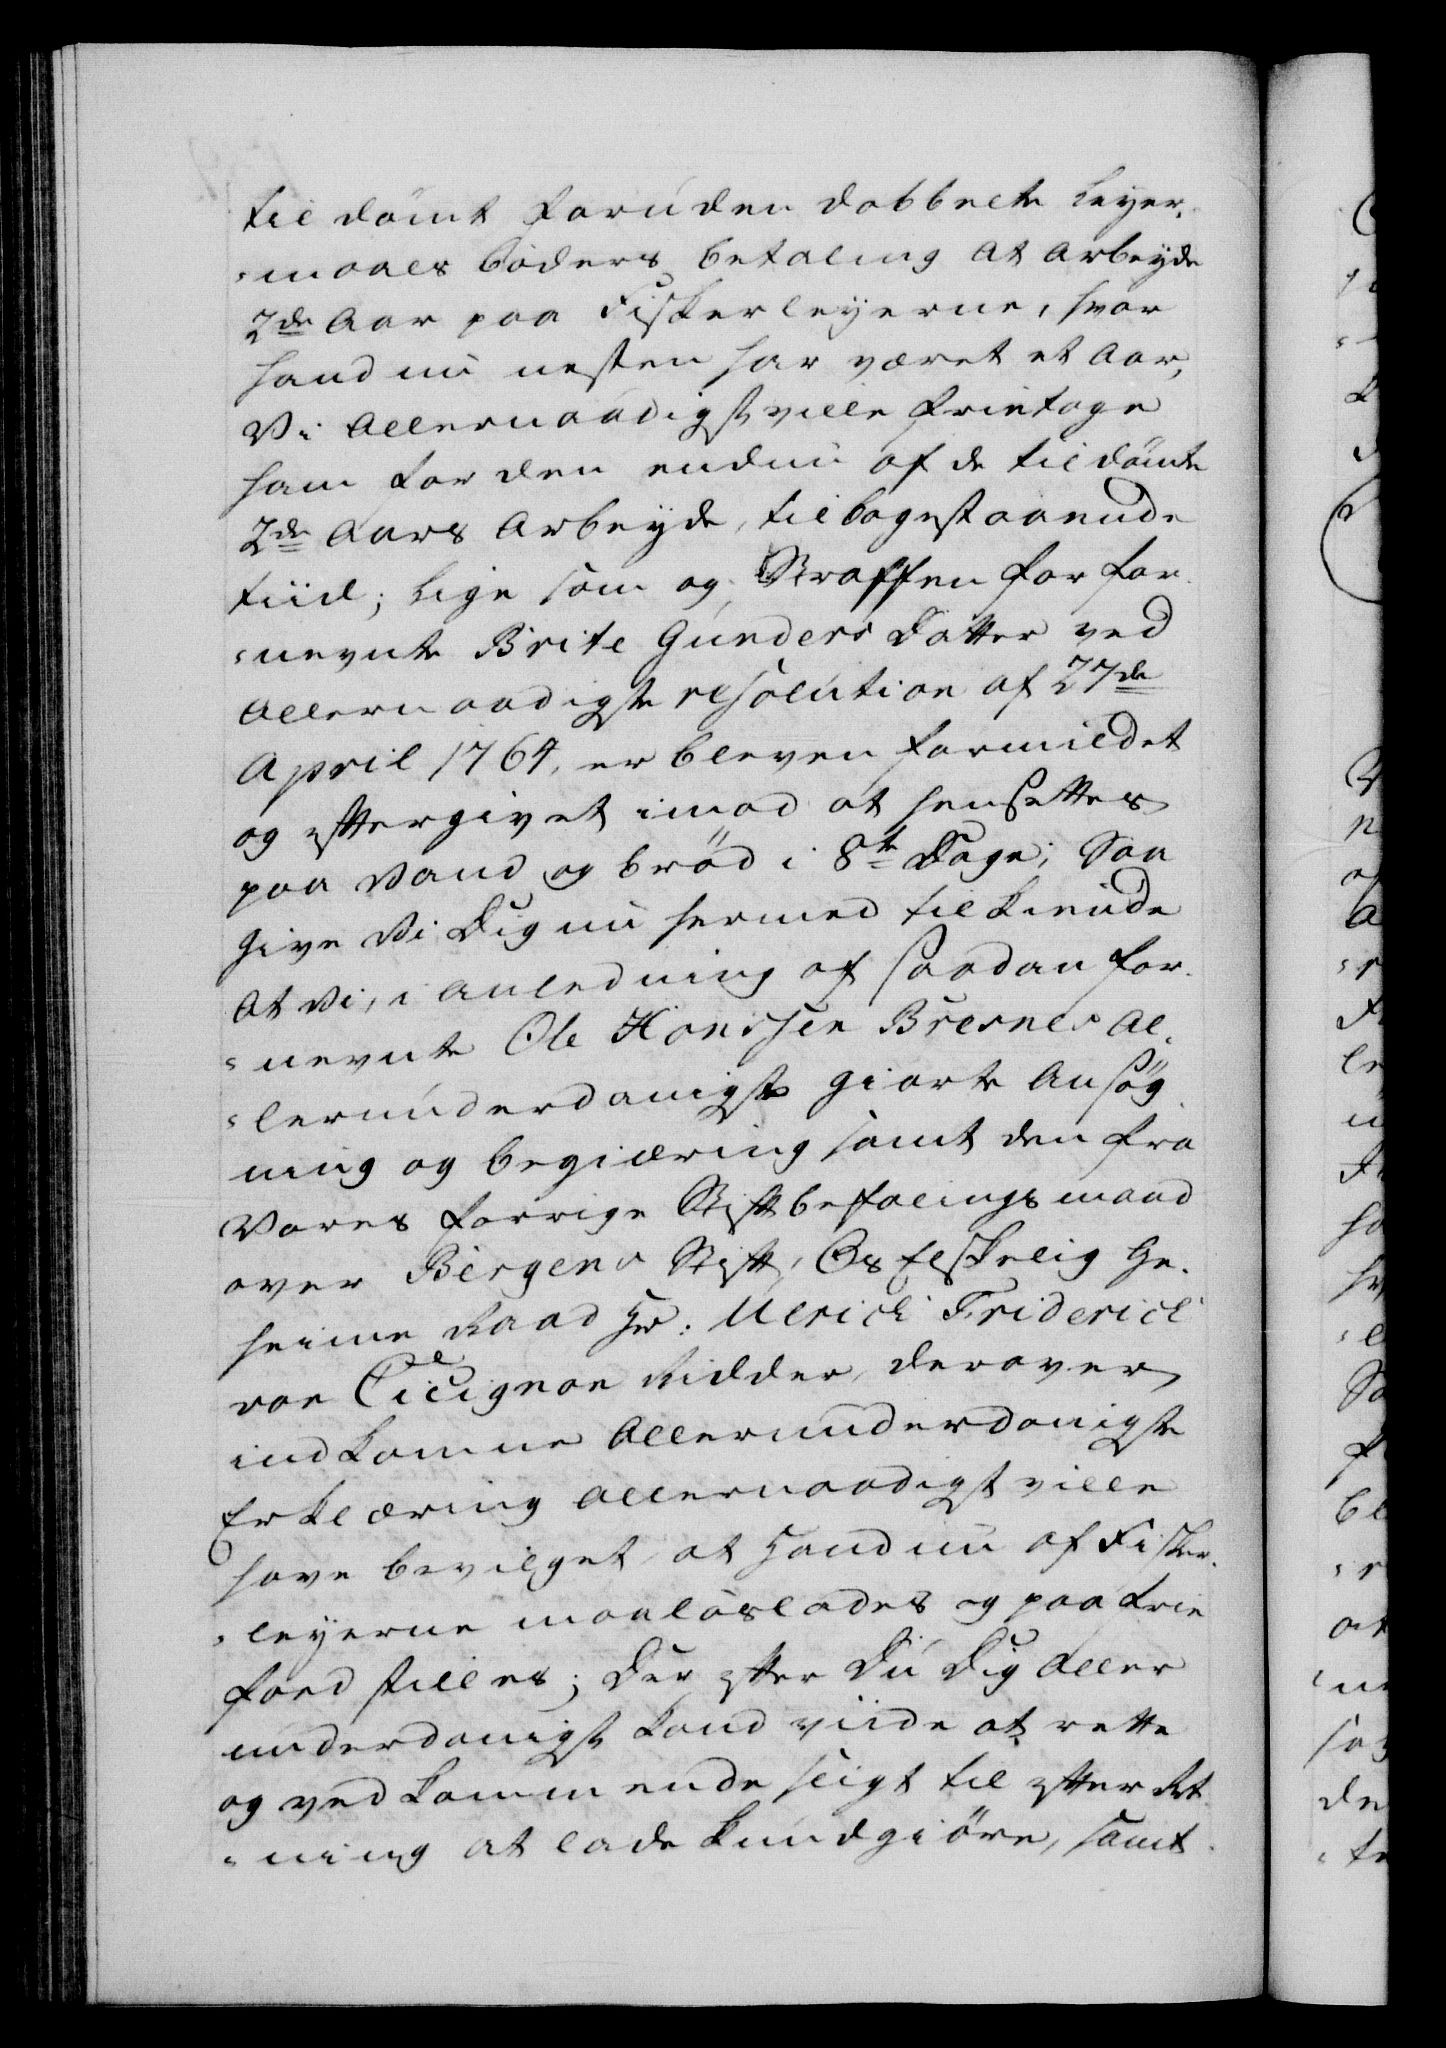 til dömt foruden dobbelte Leyer-
-maals böders betaling at arbeyde
2de Aar paa Fiskerleyerne, hvor
hand nu nesten har været et Aar,
Vi Allernaadigst ville fritage
ham for den endnu af de tildömte
2de Aars Arbeyde, tilbagestaaende
tiid; Lige som og Straffen for for-
-nevnte Brite Gunders Datter ved
Allernaadigste resolution af 27de
April 1764, er bleven formildet
og eftergivet imod at hensettes
paa Vand og bröd i 8te Dage; Saa
give Vi Dig nu hermed tilkiende
At Vi, i anledning af saadan for-
-nevnte Ole Hanssen Bresnes al-
-lerunderdanigst giorte Ansög
ning og begiæring samt den fra
Vores forrige Stiftbefalingsmand
over Bergens Stift, Os Elskelig Ge-
heime Raad Hr: Ulrich Friderich
von Cicignon Ridder, derover
indkomne Allerunderdanigste
Erklæring allernaadigst ville
have bevilget, at Hand nu af Fisker-
-leyerne maa löslades og paa frie
foed stilles; Der efter Du Dig Aller
underdanigst kand viide at rette
og vedkommende sligt til efterret-
-ning at lade kundgiöre, samt